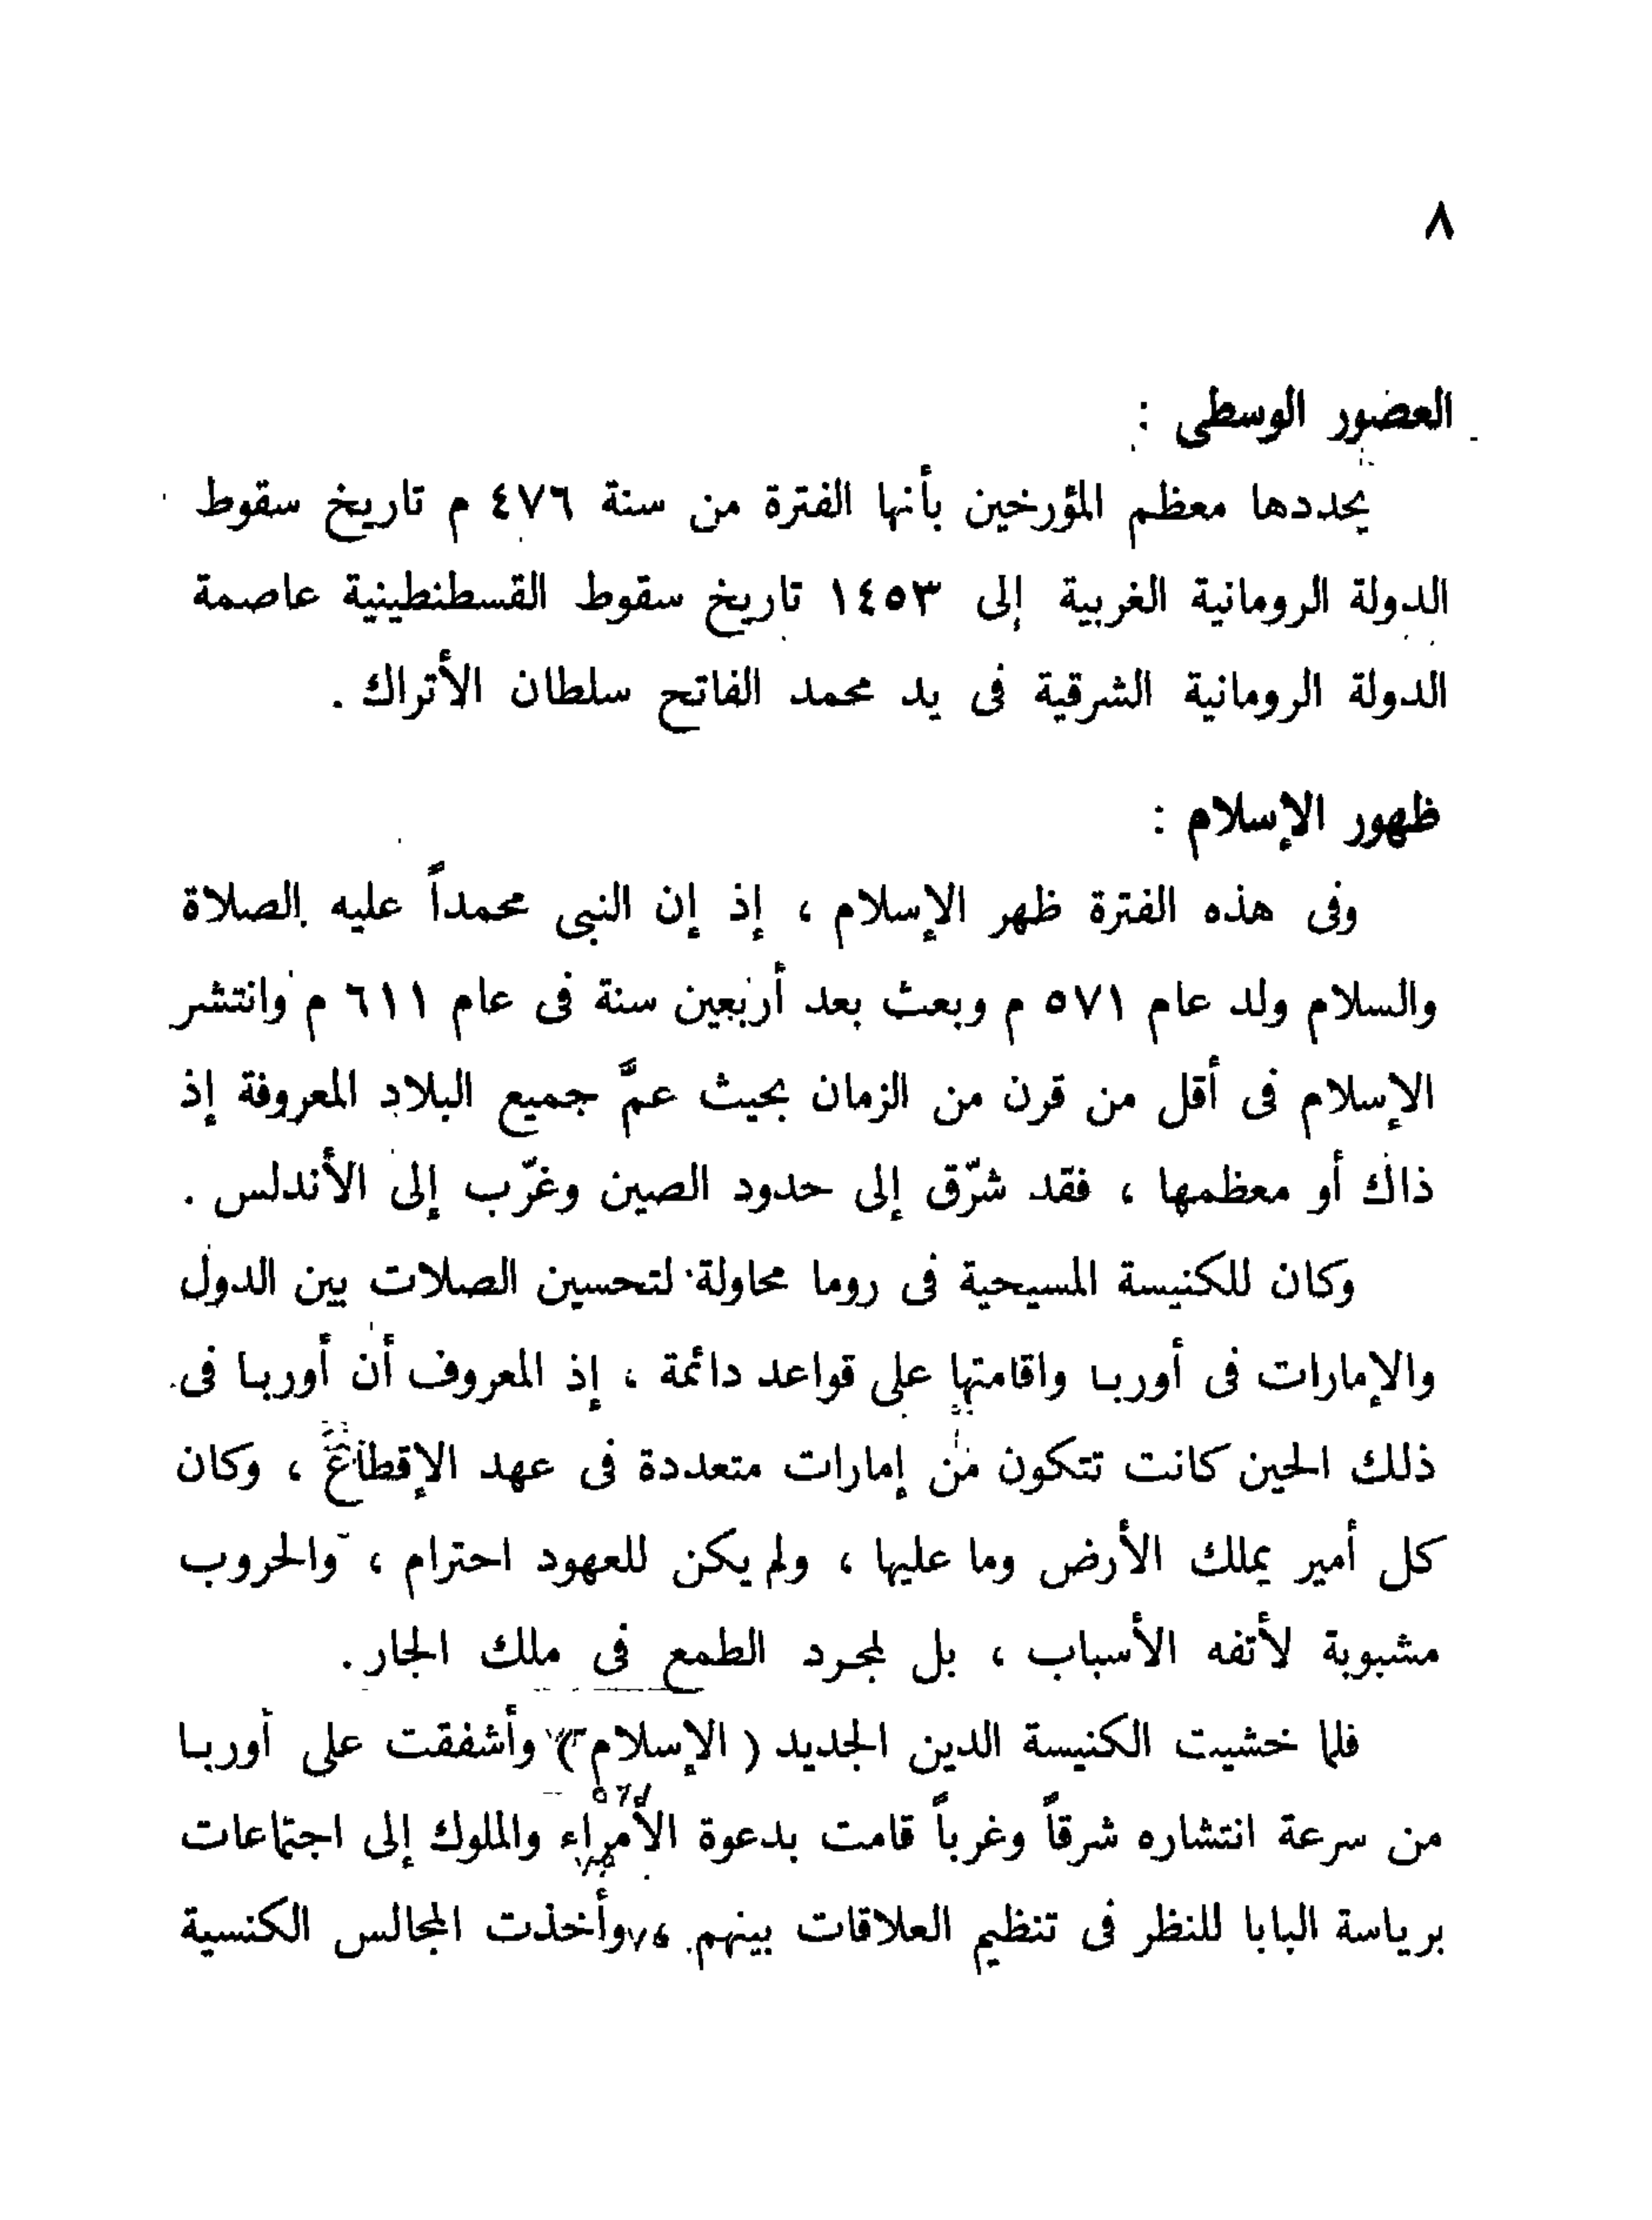 ٨
العصور الوسطى :
يحددها معظم المؤرخين بأنها الفترة من سنة ٤٧٦ م تاريخ سقوط
الدولة الرومانية الغربية إلى ١٤٥٣ تاريخ سقوط القسطنطينية عاصمة
الدولة الرومانية الشرقية فى يد محمد الفاتح سلطان الأتراك .
ظهور الإسلام :
وفى هذه الفترة ظهر الإسلام ، إذ إن النبى محمداً عليه الصلاة
والسلام ولد عام ٥٧١ م وبعث بعد أربعين سنة فى عام ٦١١ م وانتشر
الإسلام فى أقل من قرن من الزمان بحيث عمَّ جميع البلاد المعروفة إذ
ذاك أو معظمها ، فقد شرّق إلى حدود الصين وغرّب إلى الأندلس .
وكان للكنيسة المسيحية فى روما محاولة لتحسين الصلات بين الدول
والإمارات فى أوربا واقامتها على قواعد دائمة ، إذ المعروف أن أوربا فى
ذلك الحين كانت تتكون من إمارات متعددة فى عهد الإقطاع ، وكان
كل أمير يملك الأرض وما عليها ، ولم يكن للعهود احترام ، والحروب
مشبوبة لأتفه الأسباب ، بل لمجرد الطمع فى ملك الجار .
فلما خشيت الكنيسة الدين الجديد ( الإسلام ) وأشفقت على أوربا
من سرعة انتشاره شرقاً وغرباً قامت بدعوة الأمراء والملوك إلى اجتماعات
برياسة البابا للنظر فى تنظيم العلاقات بينهم ، وأخذت المجالس الكنسية